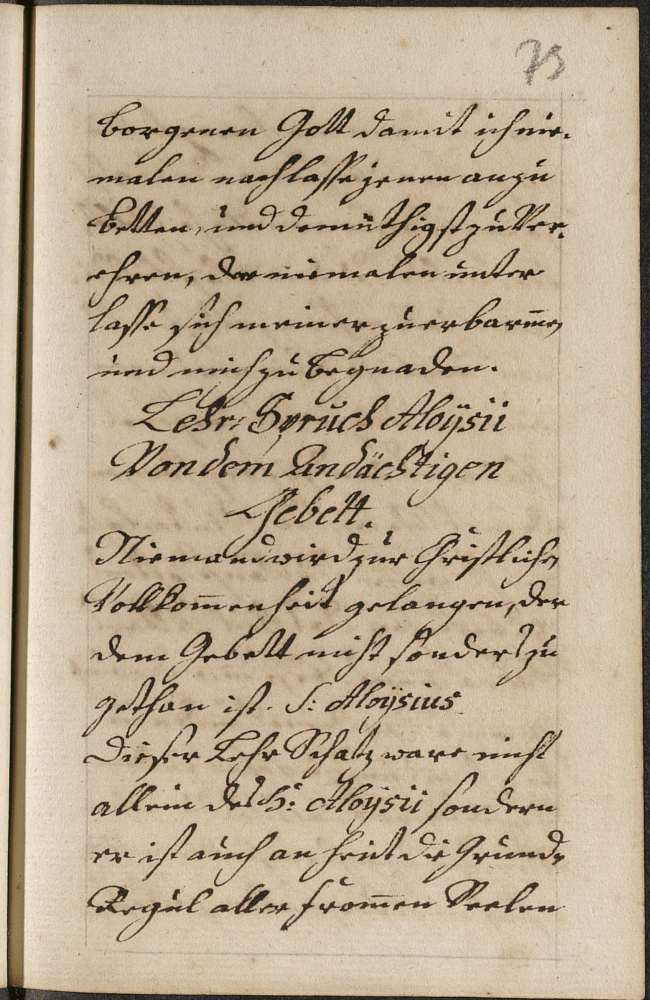 75
borgenen Gott damit ich nie-
malen nachlasse jenen anzu
betten, und demüthigst zu Ver-
ehren, der niemalen unter
lasse sich meiner zu erbarm̅en
und mich zu begnaden.
Lehr: Spruch Aloÿsii
Von dem Andächtigen
Gebett.
Niemand wird zur Christlichen
Vollkom̅enheit gelangen, der
dem Gebett nicht sonders zu
gethan ist. S: Aloÿsius.
Dieser Lehr Schatz ware nicht
allein des h: Aloÿsii sondern
er ist auch an heut die Grund-
Regul aller from̅en Seelen